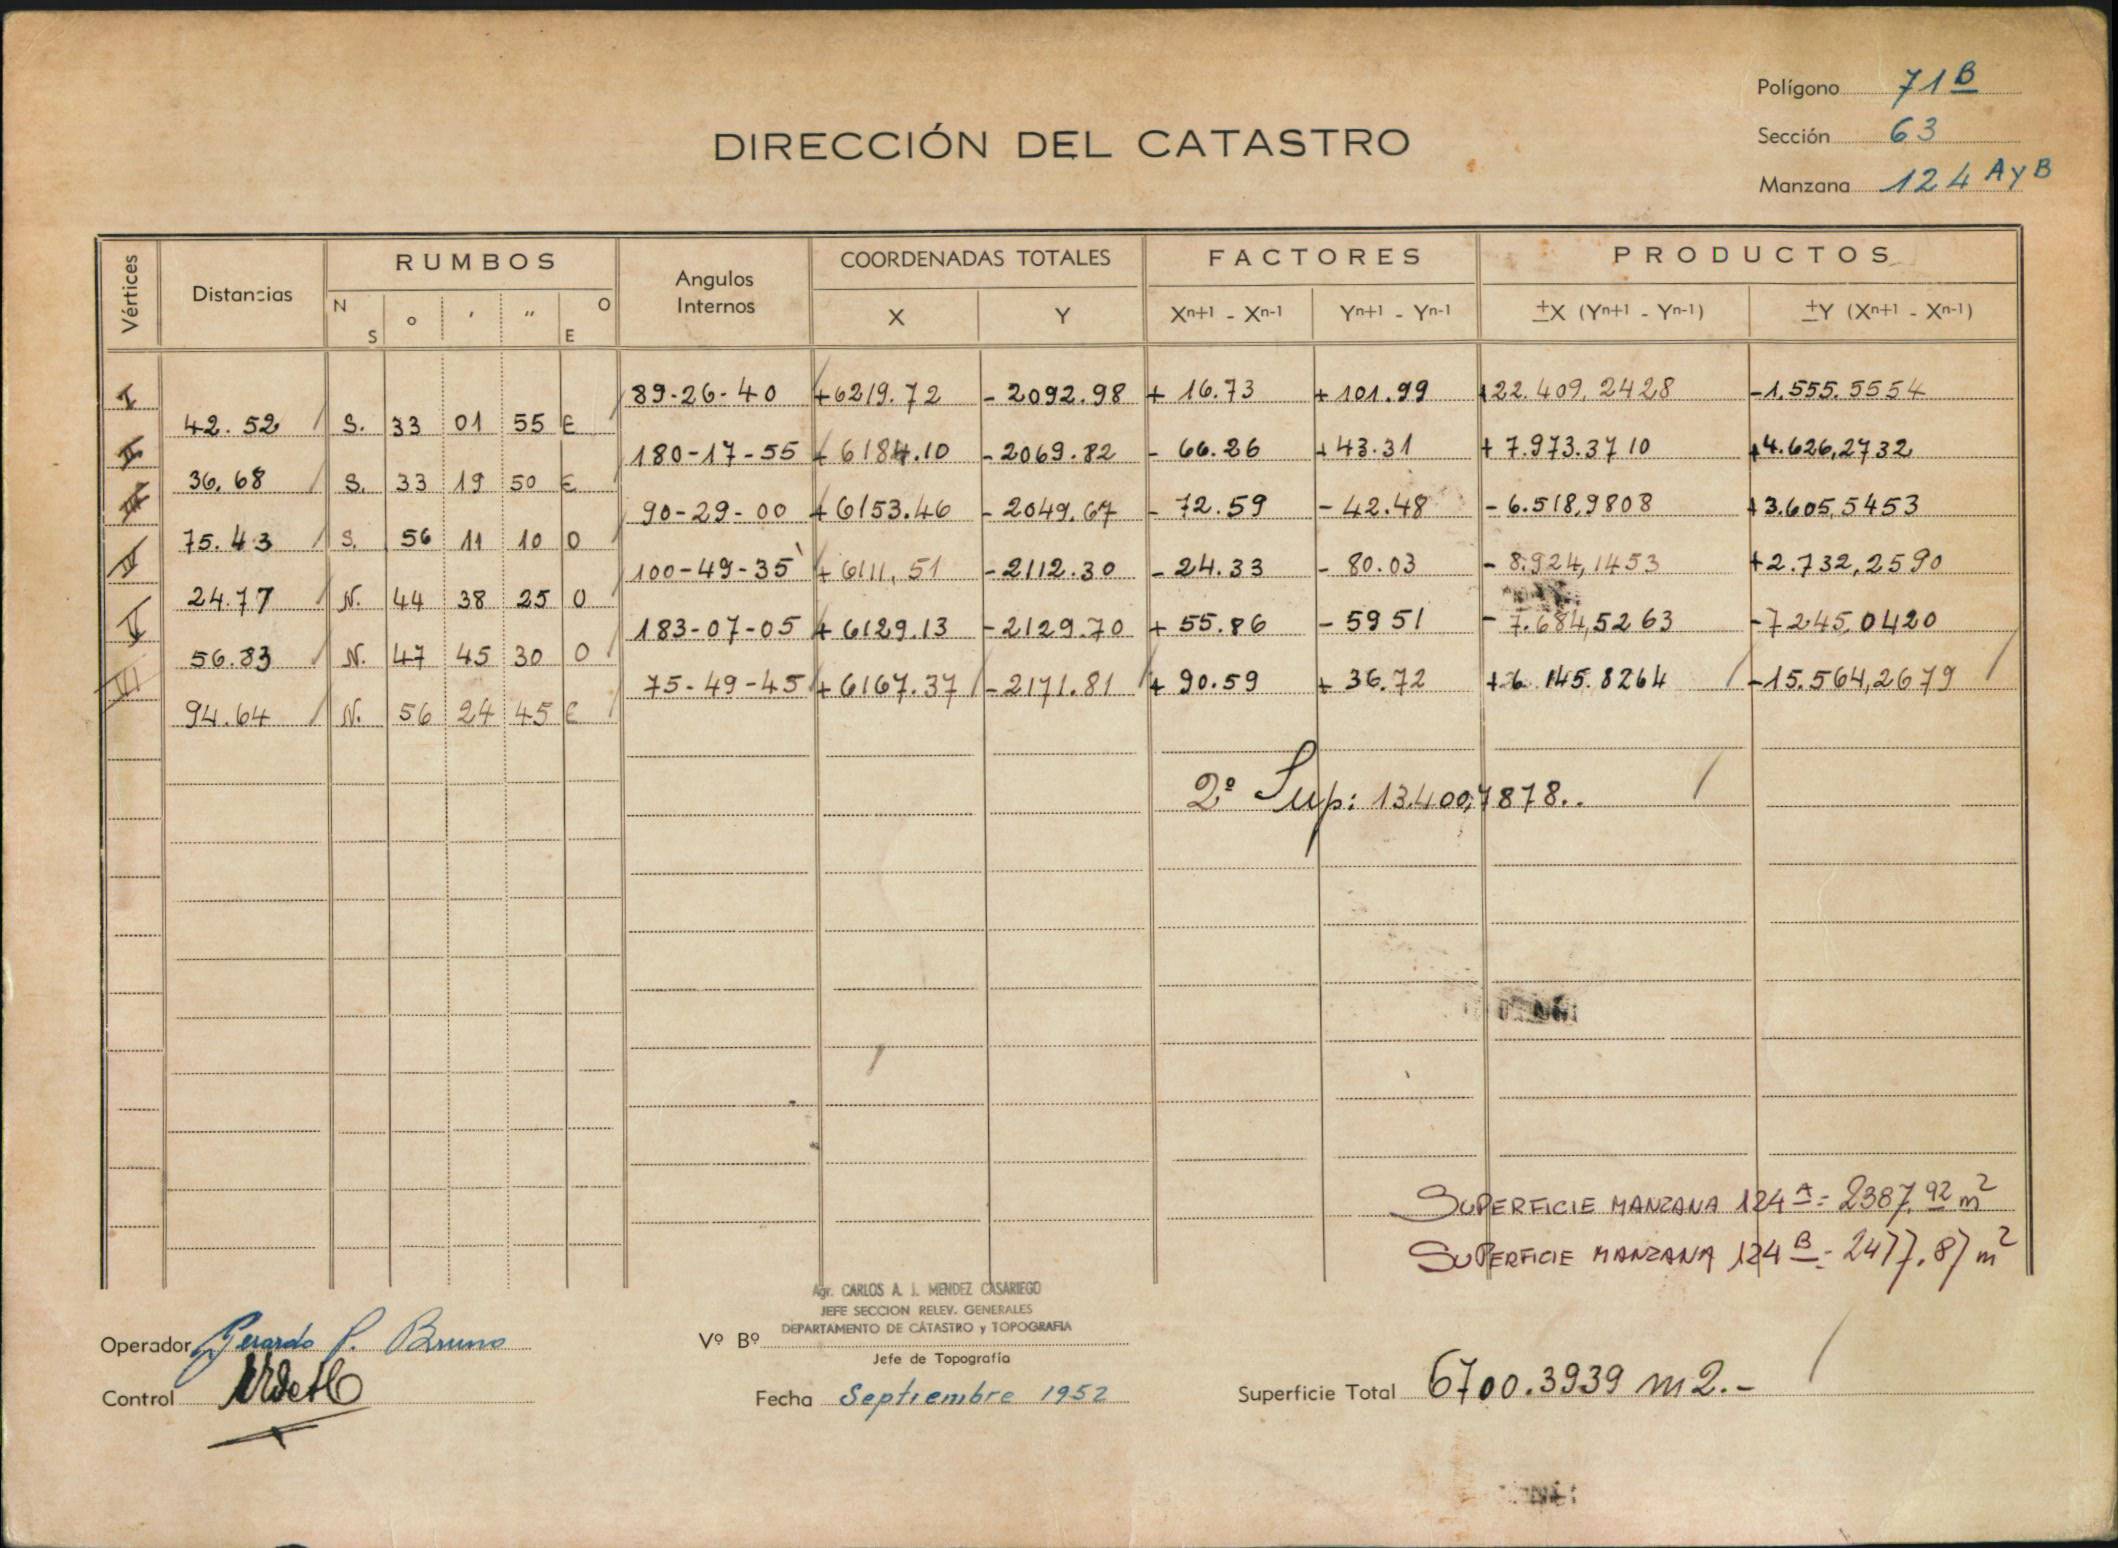 Polígono 71 B
Sección 63
Manzana 124 A y B
DIRECCIÓN DEL CATASTRO
Vértices Distancias RUMBOS Angulos Internos COORDENADAS TOTALES FACTORES PRODUCTOS
N S o ' " O E X Y Xn+1 - Xn-1 Yn+1 - Yn-1 ±X (Yn+1 - Yn-1) ±Y (Xn+1 - Xn-1)
I 89-26-40 +6219.72 -2092.98 + 16.73 + 101.99 +22.409,2428 -1.555.5554
42.52 S. 33 01 55 E
II 180-17-55 + 6184.10 -2069.82 - 66.26 +43.31 + 7.973.3710 +4.626,2732
36,68 S. 33 19 50 E
III 90-29-00 +6153.46 -2049.67 - 72.59 - 42.48 - 6.518,9808 +3.605,5453
75.43 S. 56 11 10 O
IV 100-49-35 + 6111,51 -2112.30 - 24.33 - 80.03 - 8.924,1453 +2.732,2590
24.77 N. 44 38 25 O
V 183-07-05 + 6129.13 -2129.70 + 55.86 - 59 51 - 7.684,5263 -7245,0420
56.83 N. 47 45 30 O
VI 75-49-45 + 6167.37 -2171.81 + 90.59 + 36.72 +6.145.8264 -15.564,2679
94.64 N. 56 24 45 E
2º Sup: 13.400,7878..
SUPERFICIE MANZANA 124 A = 2387.92 m2
SUPERFICIE MANZANA 124 B = 2477.87 m2
Agr. CARLOS A. J. MENDEZ CASARIEGO
JEFE SECCION RELEV. GENERALES
DEPARTAMENTO DE CATASTRO y TOPOGRAFIA
Operador Gerardo P. Bruno Vº Bº
Jefe de Topografía
Control Fecha Septiembre 1952 Superficie Total 6700.3939 m2.-